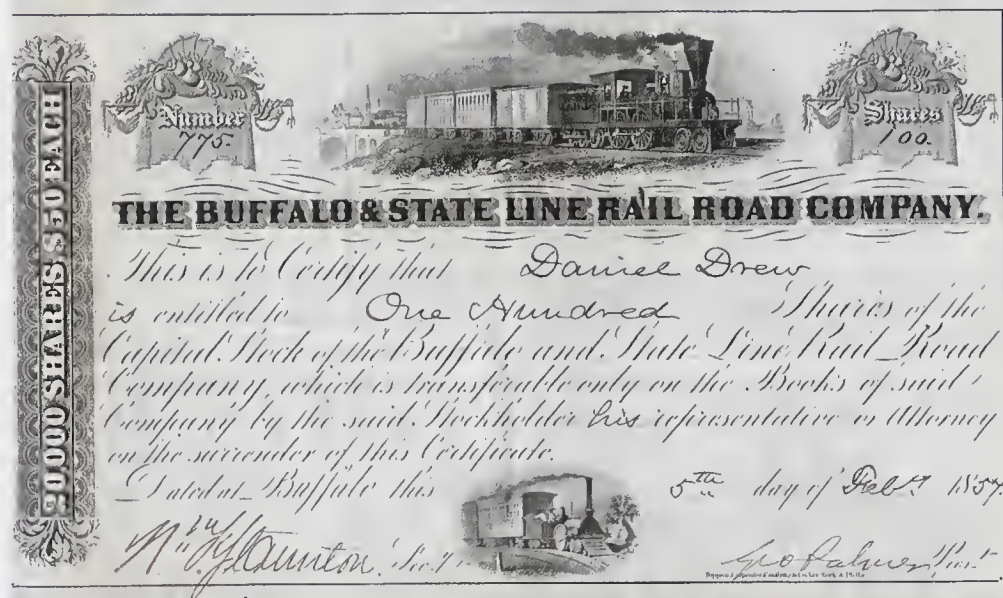 Number
775.
Shares
100.
20,000 SHARES $50 EACH
THE BUFFALO & STATE LINE RAIL ROAD COMPANY.
This is to Certify that Daniel Drew
is entitled to One Hundred Shares of the
Capital Stock of the Buffalo and State Line Rail Road
Company, which is transferable only on the Books of said
Company by the said Stockholder his representative or Attorney
on the surrender of this Certificate.
Dated at Buffalo this 5th day of Feby 1857
Secy
Geo Palmer Prest